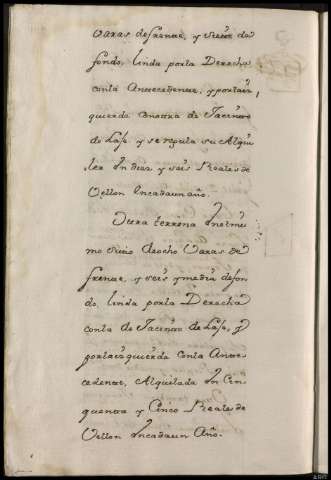 Varas de frente, y siete de
fondo, linda por la Derecha
con la Antecedente, y por la iz,
quierda con otra de Jacinto
de Lafe, y se regula su Alqui
ler en diez y seis Reales de
Vellon en cada un año.
Otra terrena en el mis
mo sitio de ocho Varas de
frente, y seis y media de fon
do, linda por la Derecha
con la de Jacinto de Lafe, y
por la izquierda con la Ante
cedente, Alquilada en Cin
quenta y Cinco Reales de
Vellon en cada un Año.